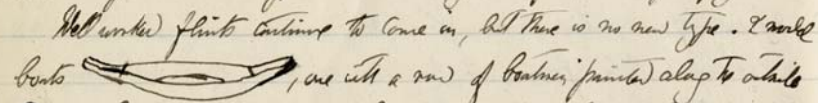 Well worked flints continue to come in, but there is no new type. 2 model
boats , one with a row of boatmen painted along the outside